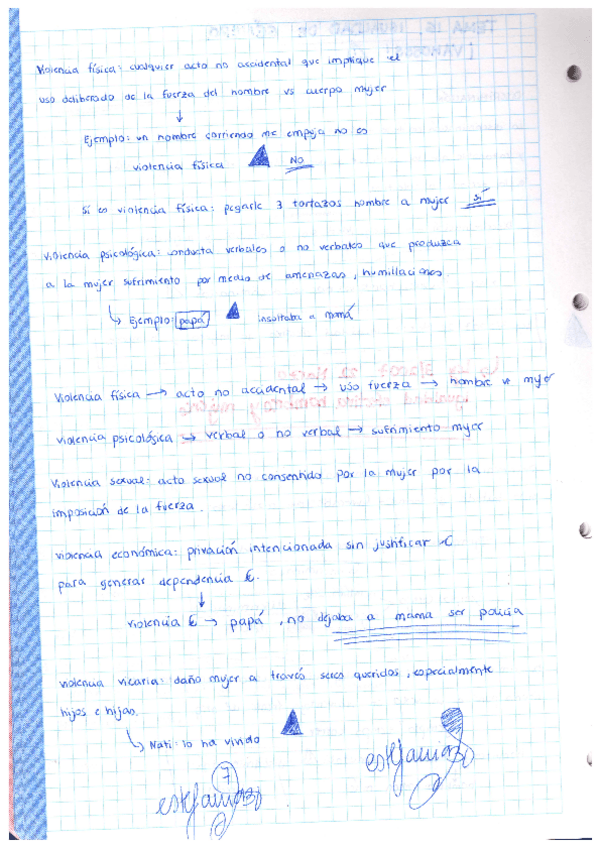 Violencia física: cualquier acto no accidental que implique el
uso deliberado de la fuerza del hombre vs cuerpo mujer
Ejemplo: un hombre corriendo me empuja no es
violencia física NO
Sí es violencia física: pegarle 3 tortazos hombre a mujer sí
violencia psicológica: conducta verbales o no verbales que produzca
a la mujer sufrimiento por medio de amenazas, humillaciones.
↳ Ejemplo: papá insultaba a mamá
Violencia física → acto no accidental → uso fuerza → hombre vs mujer
violencia psicológica → verbal o no verbal → sufrimiento mujer
Violencia sexual: acto sexual no consentido por la mujer por la
imposición de la fuerza.
violencia económica: privación intencionada sin justificar €
para generar dependencia €.
violencia € → papá, no dejaba a mama ser policía
violencia vicaria: daño mujer a través seres queridos, especialmente
hijos e hijas.
↳ Nati: lo ha vivido
7